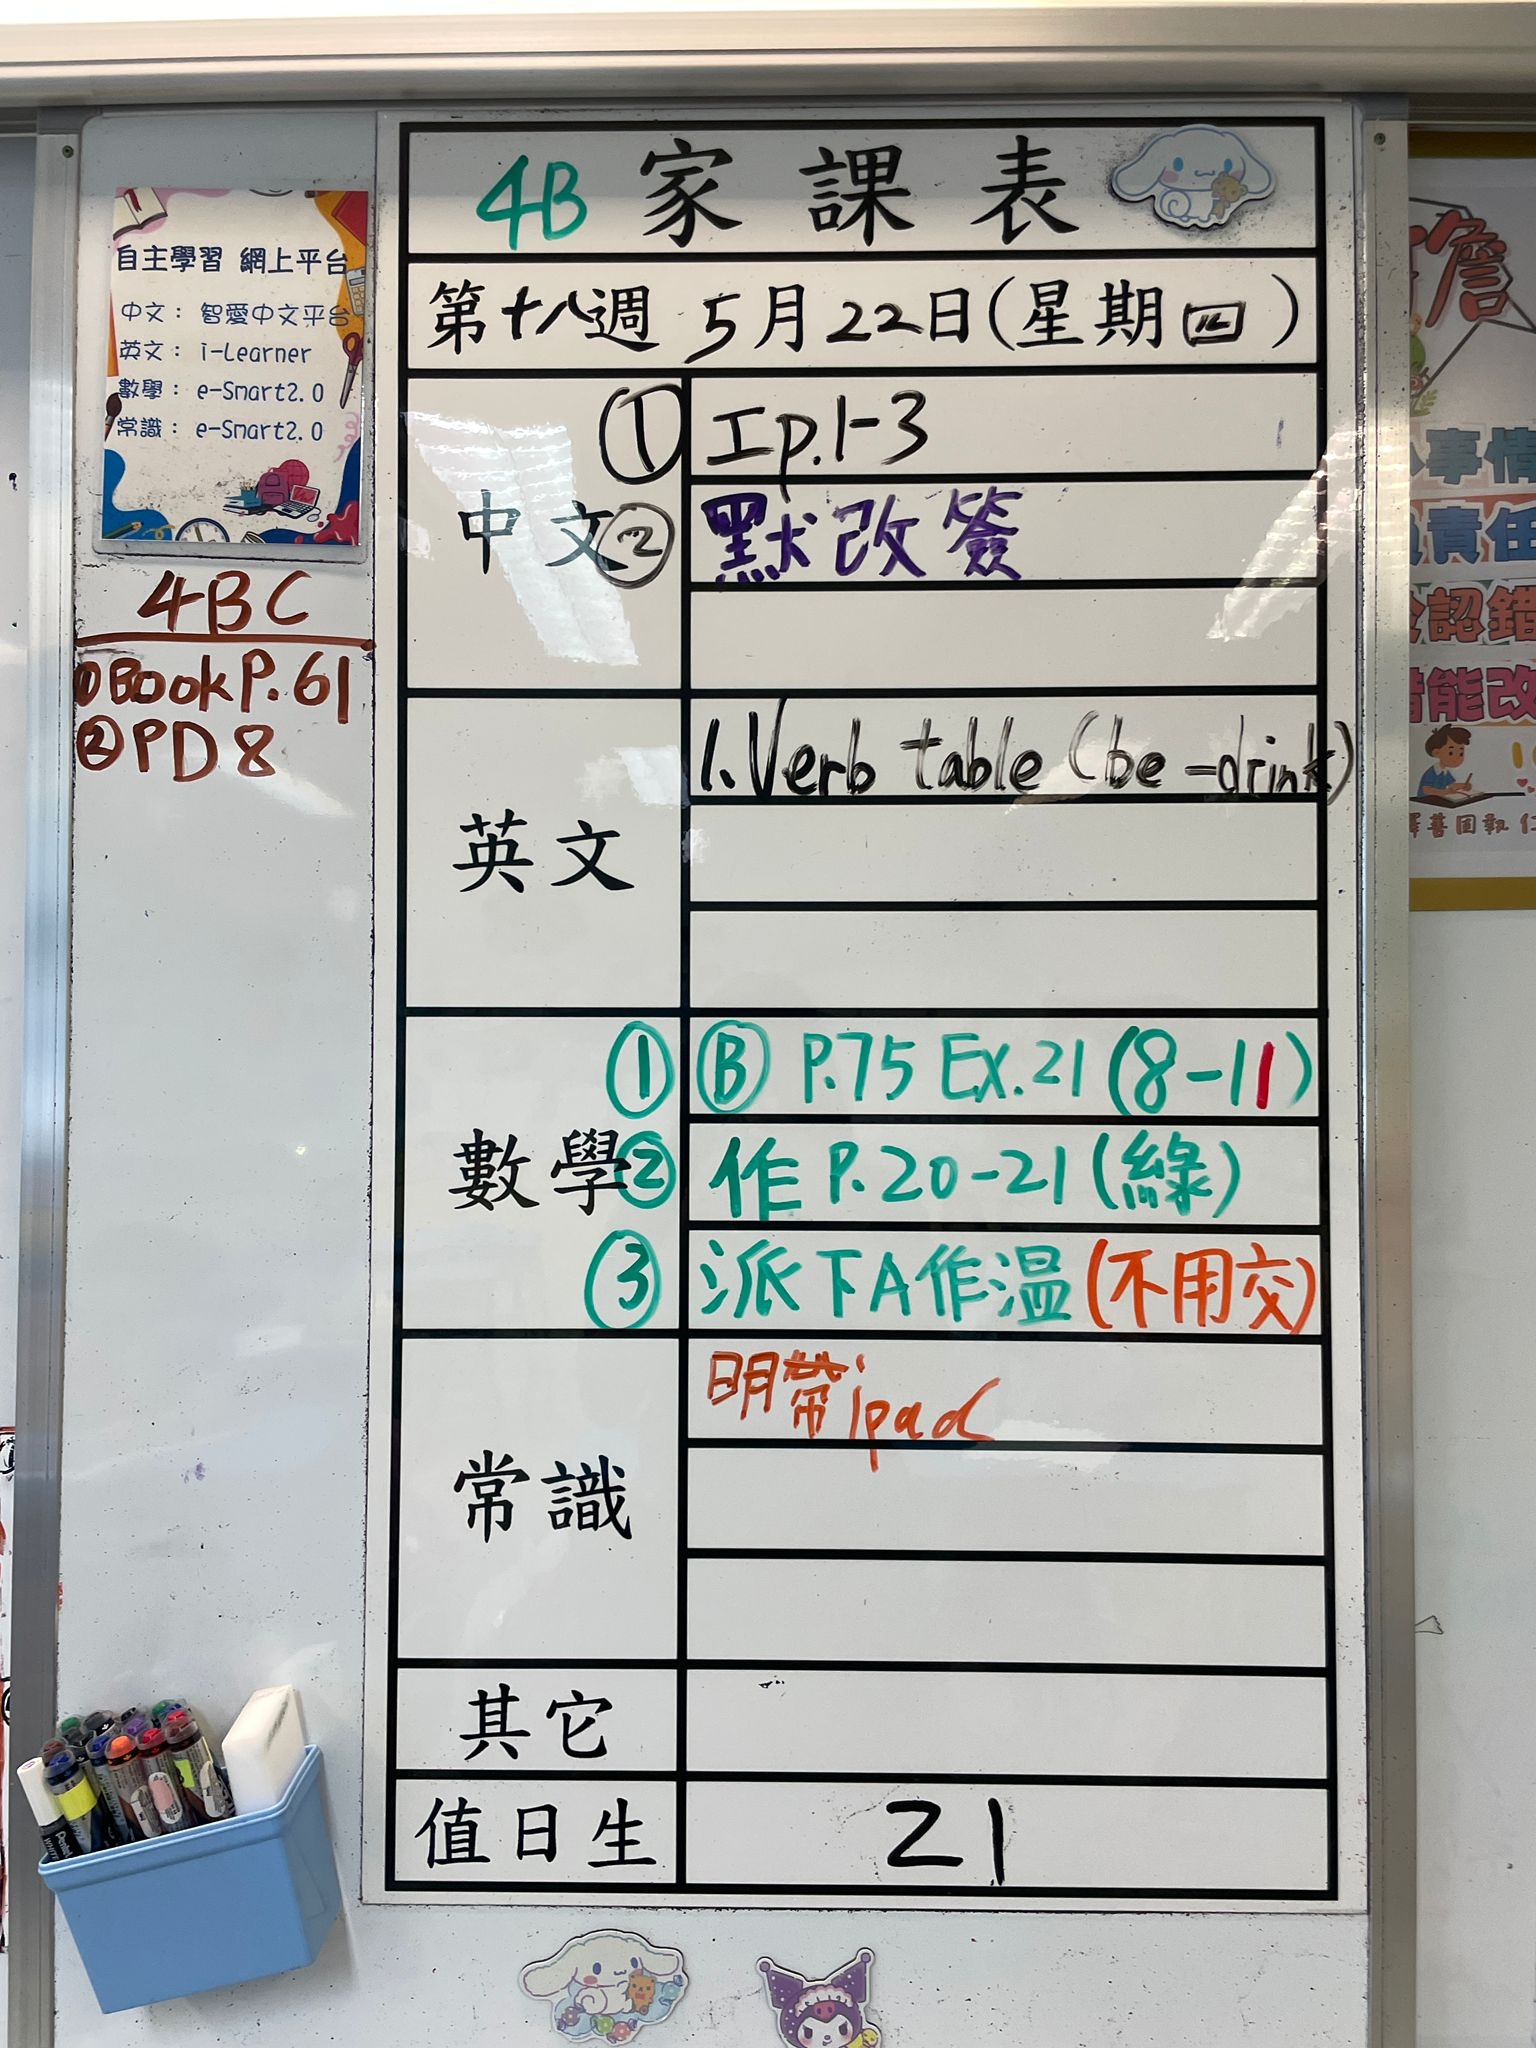 4B 家課表
第十八週 5月22日(星期四)
中文
① 工p.1-3
② 默改簽
英文
1. Verb table (be-drink)
數學
① Ⓑ P.75 Ex.21 (8-11)
② 作 P.20-21 (綠)
③ 派下A作溫(不用交)
常識
明帶ipad
其它
值日生
21
自主學習 網上平台
中文： 智愛中文平台
英文： i-Learner
數學： e-Smart2.0
常識： e-Smart2.0
4BC
①Book P.61
②PD8
事情
責任
認錯
能改
擇善固執